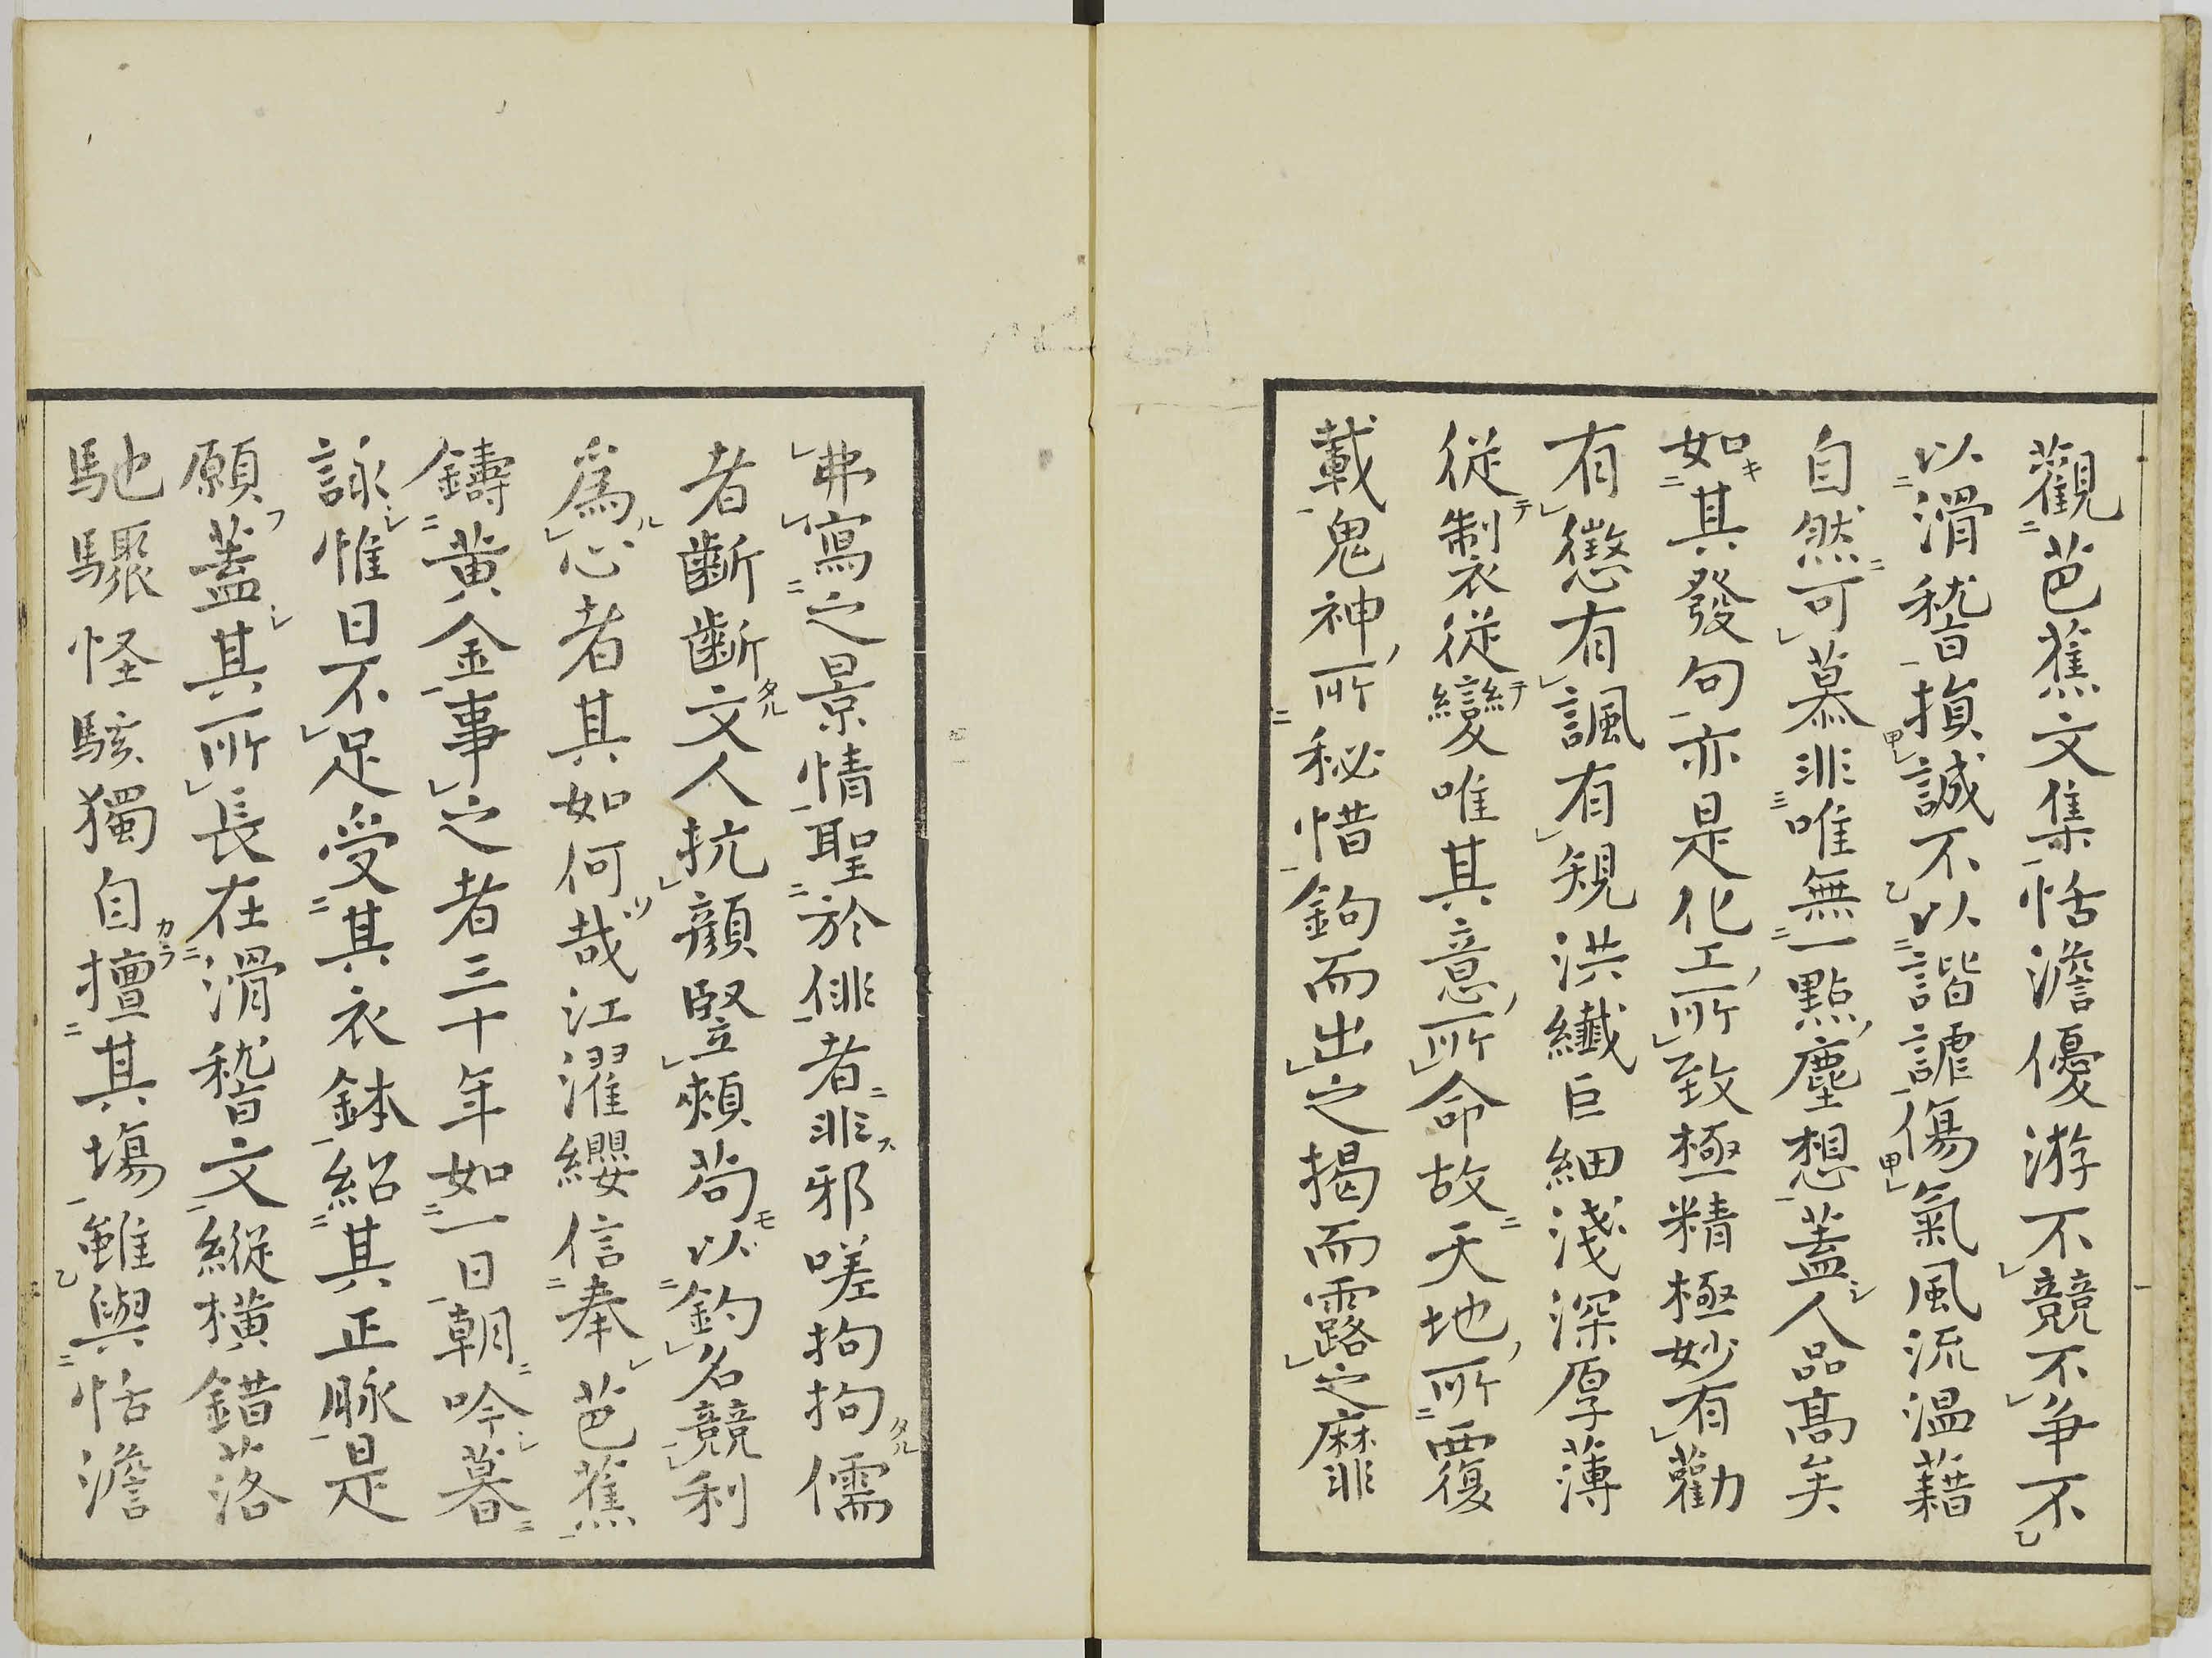 觀芭蕉文集恬澹優游不競不爭不
以滑稽損誠不以諧謔傷氣風流温藉
自然可慕非唯無一點塵想蓋人品髙矣
如其發句亦是化工所致極精極妙有勸
有懲有諷有規洪纎巨細淺深厚薄
從製從變唯其意所命故天地所覆
載鬼神所秘惜鉤而出之揭而露之靡非
弗寫之景情聖於俳者非邪嗟拘拘儒
者齗齗文人抗顔竪頰苟以釣名競利
爲心者其如何哉江濯纓信奉芭蕉
鑄黄金事之者三十年如一日朝吟暮
詠惟日不足受其衣鉢紹其正脉是
願蓋其所長在滑稽文縱横錯落
馳驟怪駭獨自擅其塲雖與恬澹